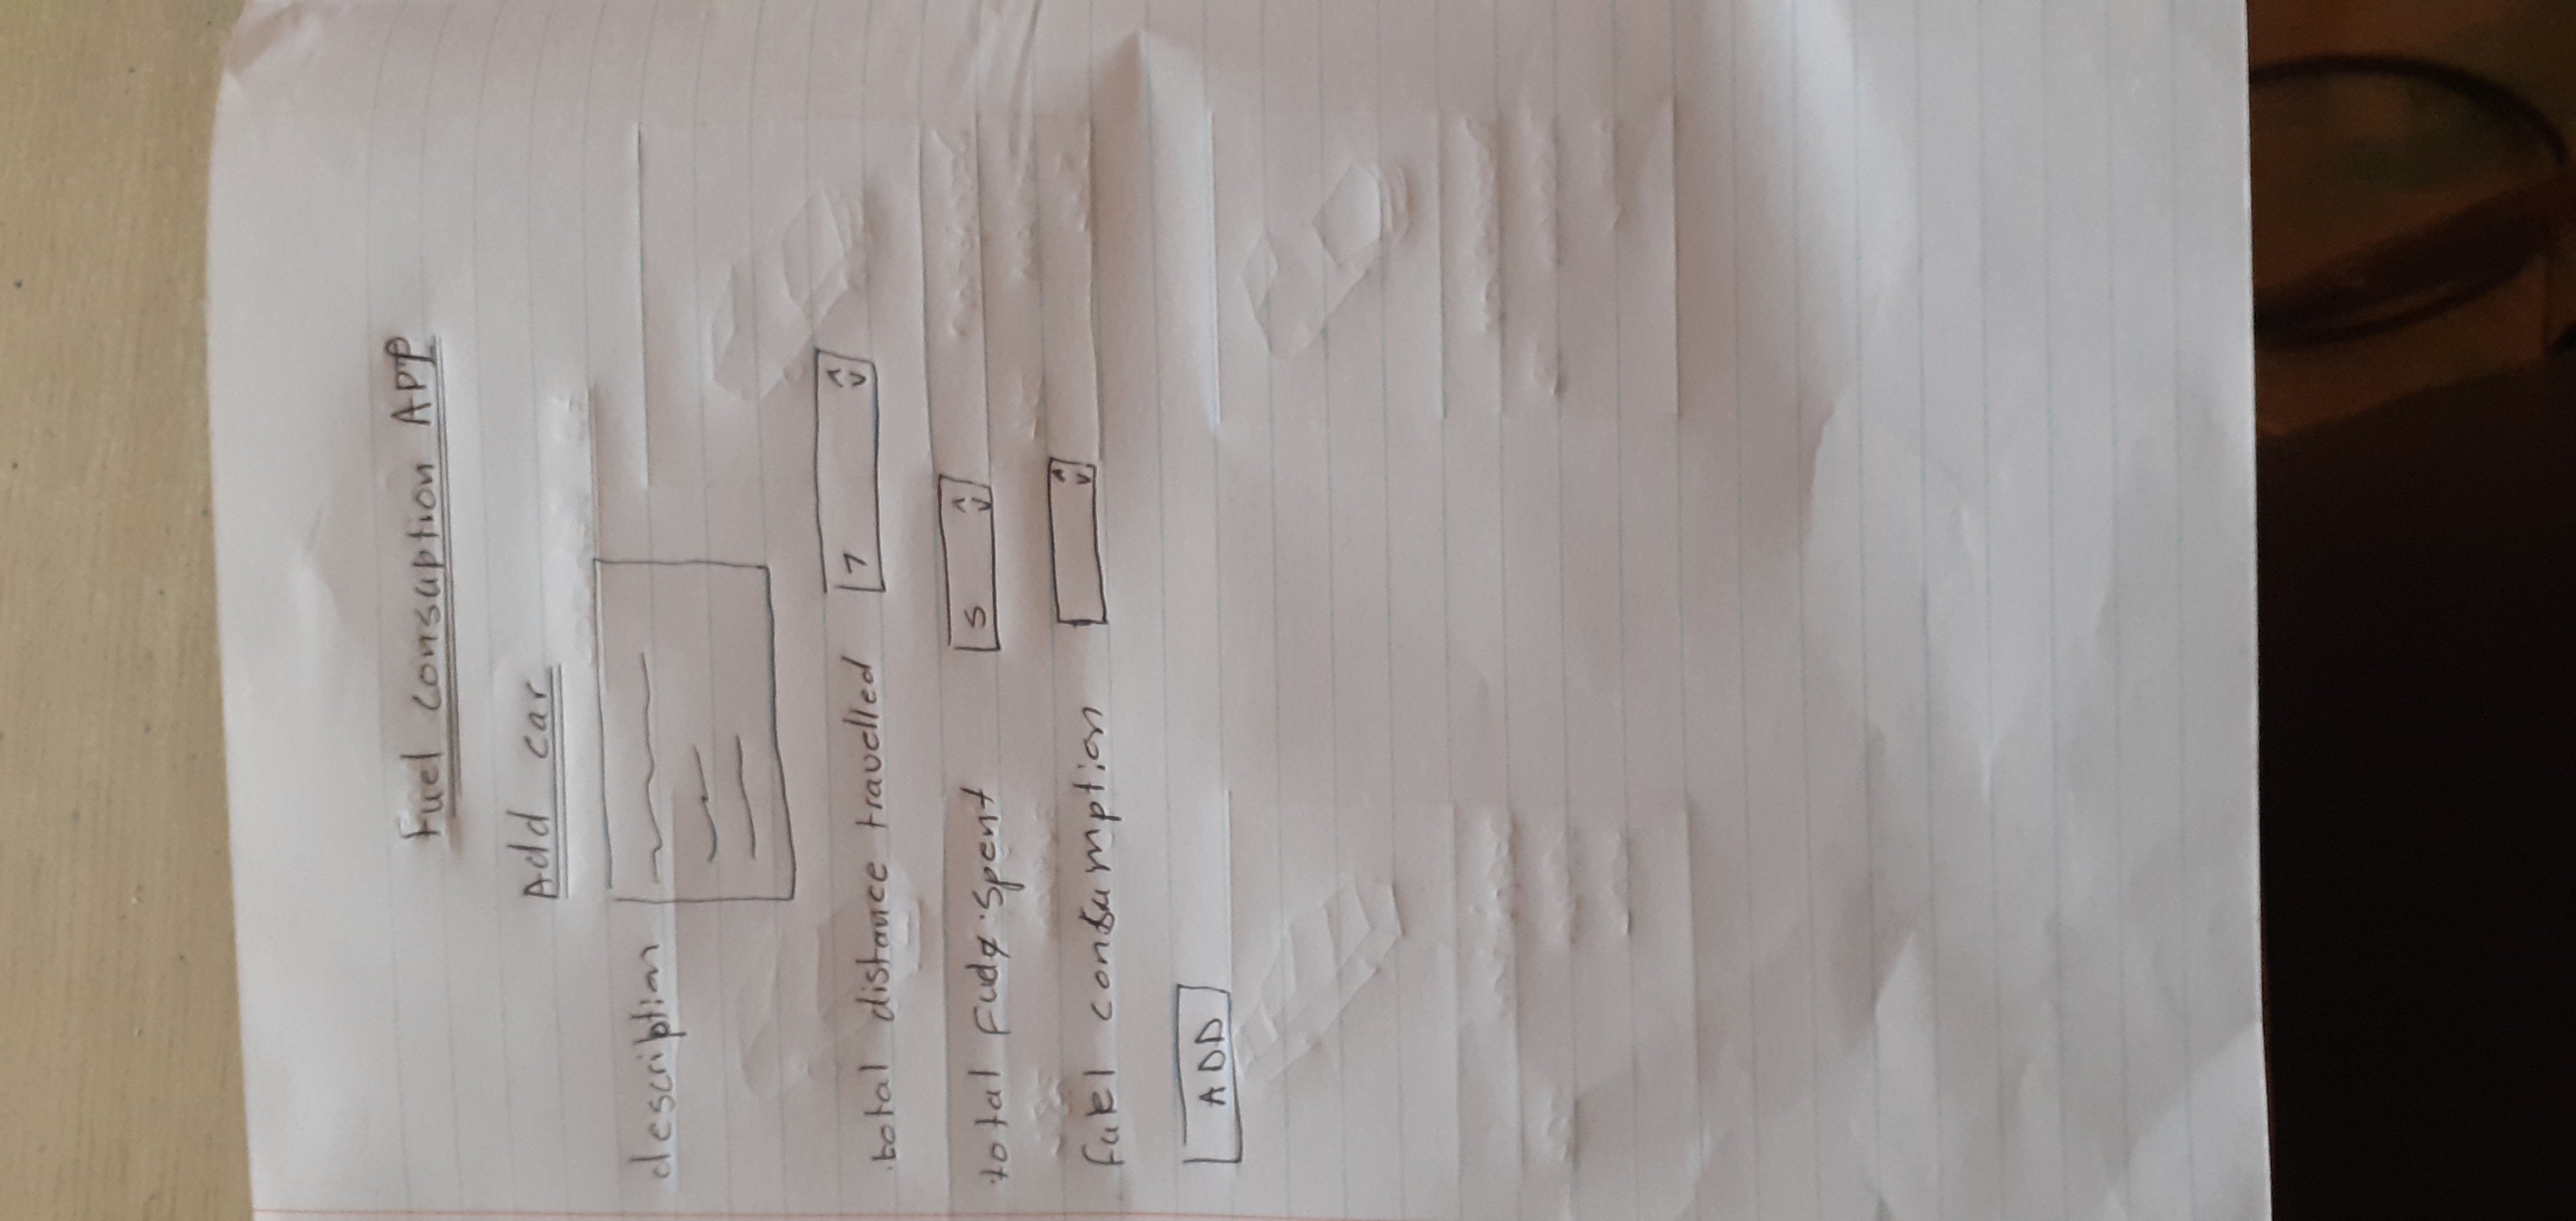 Fuel consuption APP
Add car
description
total distance travelled 7
total spent 5
fuel consumption
ADD